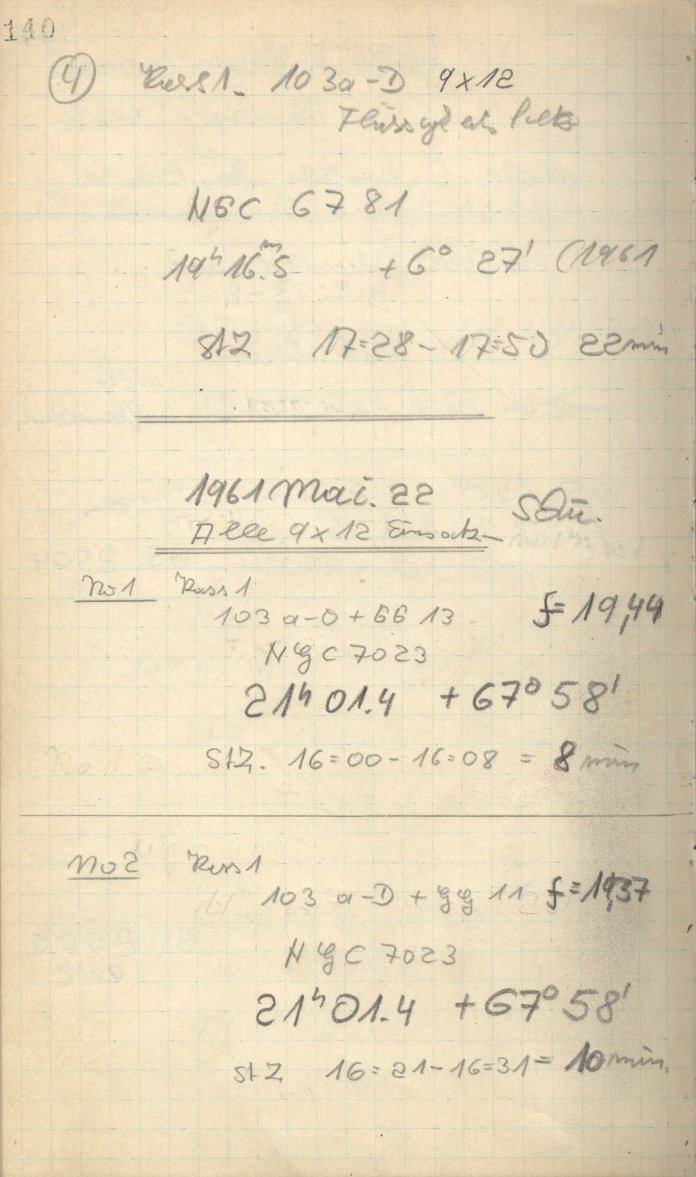 140
④ Kass 1. 103a-D 9x12
NGC 6781
19ʰ 16.ᵐ5 +6° 27' (1961
StZ 17=28 - 17=50 22 min
1961 Mai. 22 Schü.
Alle 9x12 Einsatz
No 1 Kass 1
103 a-O + GG 13 f= 19,44
NGC 7023
21ʰ 01.4 +67° 58'
StZ. 16=00 - 16=08 = 8 min
No 2 Kass 1
103 a-D + GG 11 f=19,37
NGC 7023
21ʰ 01.4 +67° 58'
StZ 16=21 - 16=31 = 10 min.